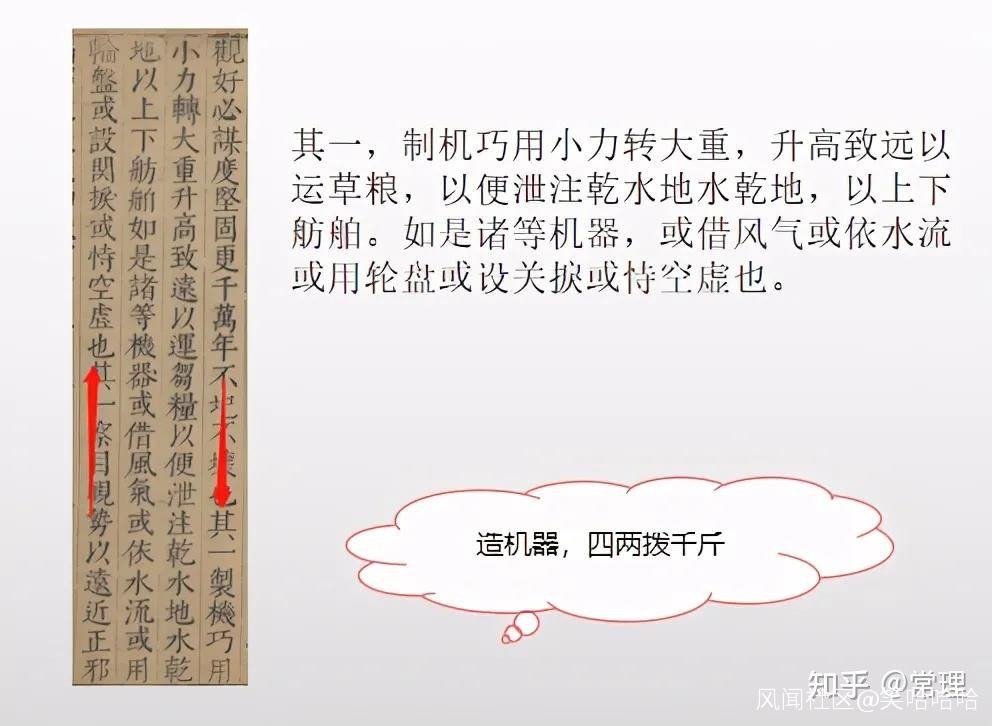 觀好必謀度堅固更千萬年不圮不壞也其一製機巧用
小力轉大重升高致遠以運芻糧以便泄注乾水地水乾
地以上下舫舶如是諸等機器或借風氣或依水流或用
輪盤或設關捩或恃空虛也其一察目視勢以遠近正邪
其一，制机巧用小力转大重，升高致远以
运草粮，以便泄注乾水地水乾地，以上下
舫舶。如是诸等机器，或借风气或依水流
或用轮盘或设关捩或恃空虚也。
造机器，四两拨千斤
知乎 @常理
风闻社区@笑哈哈哈